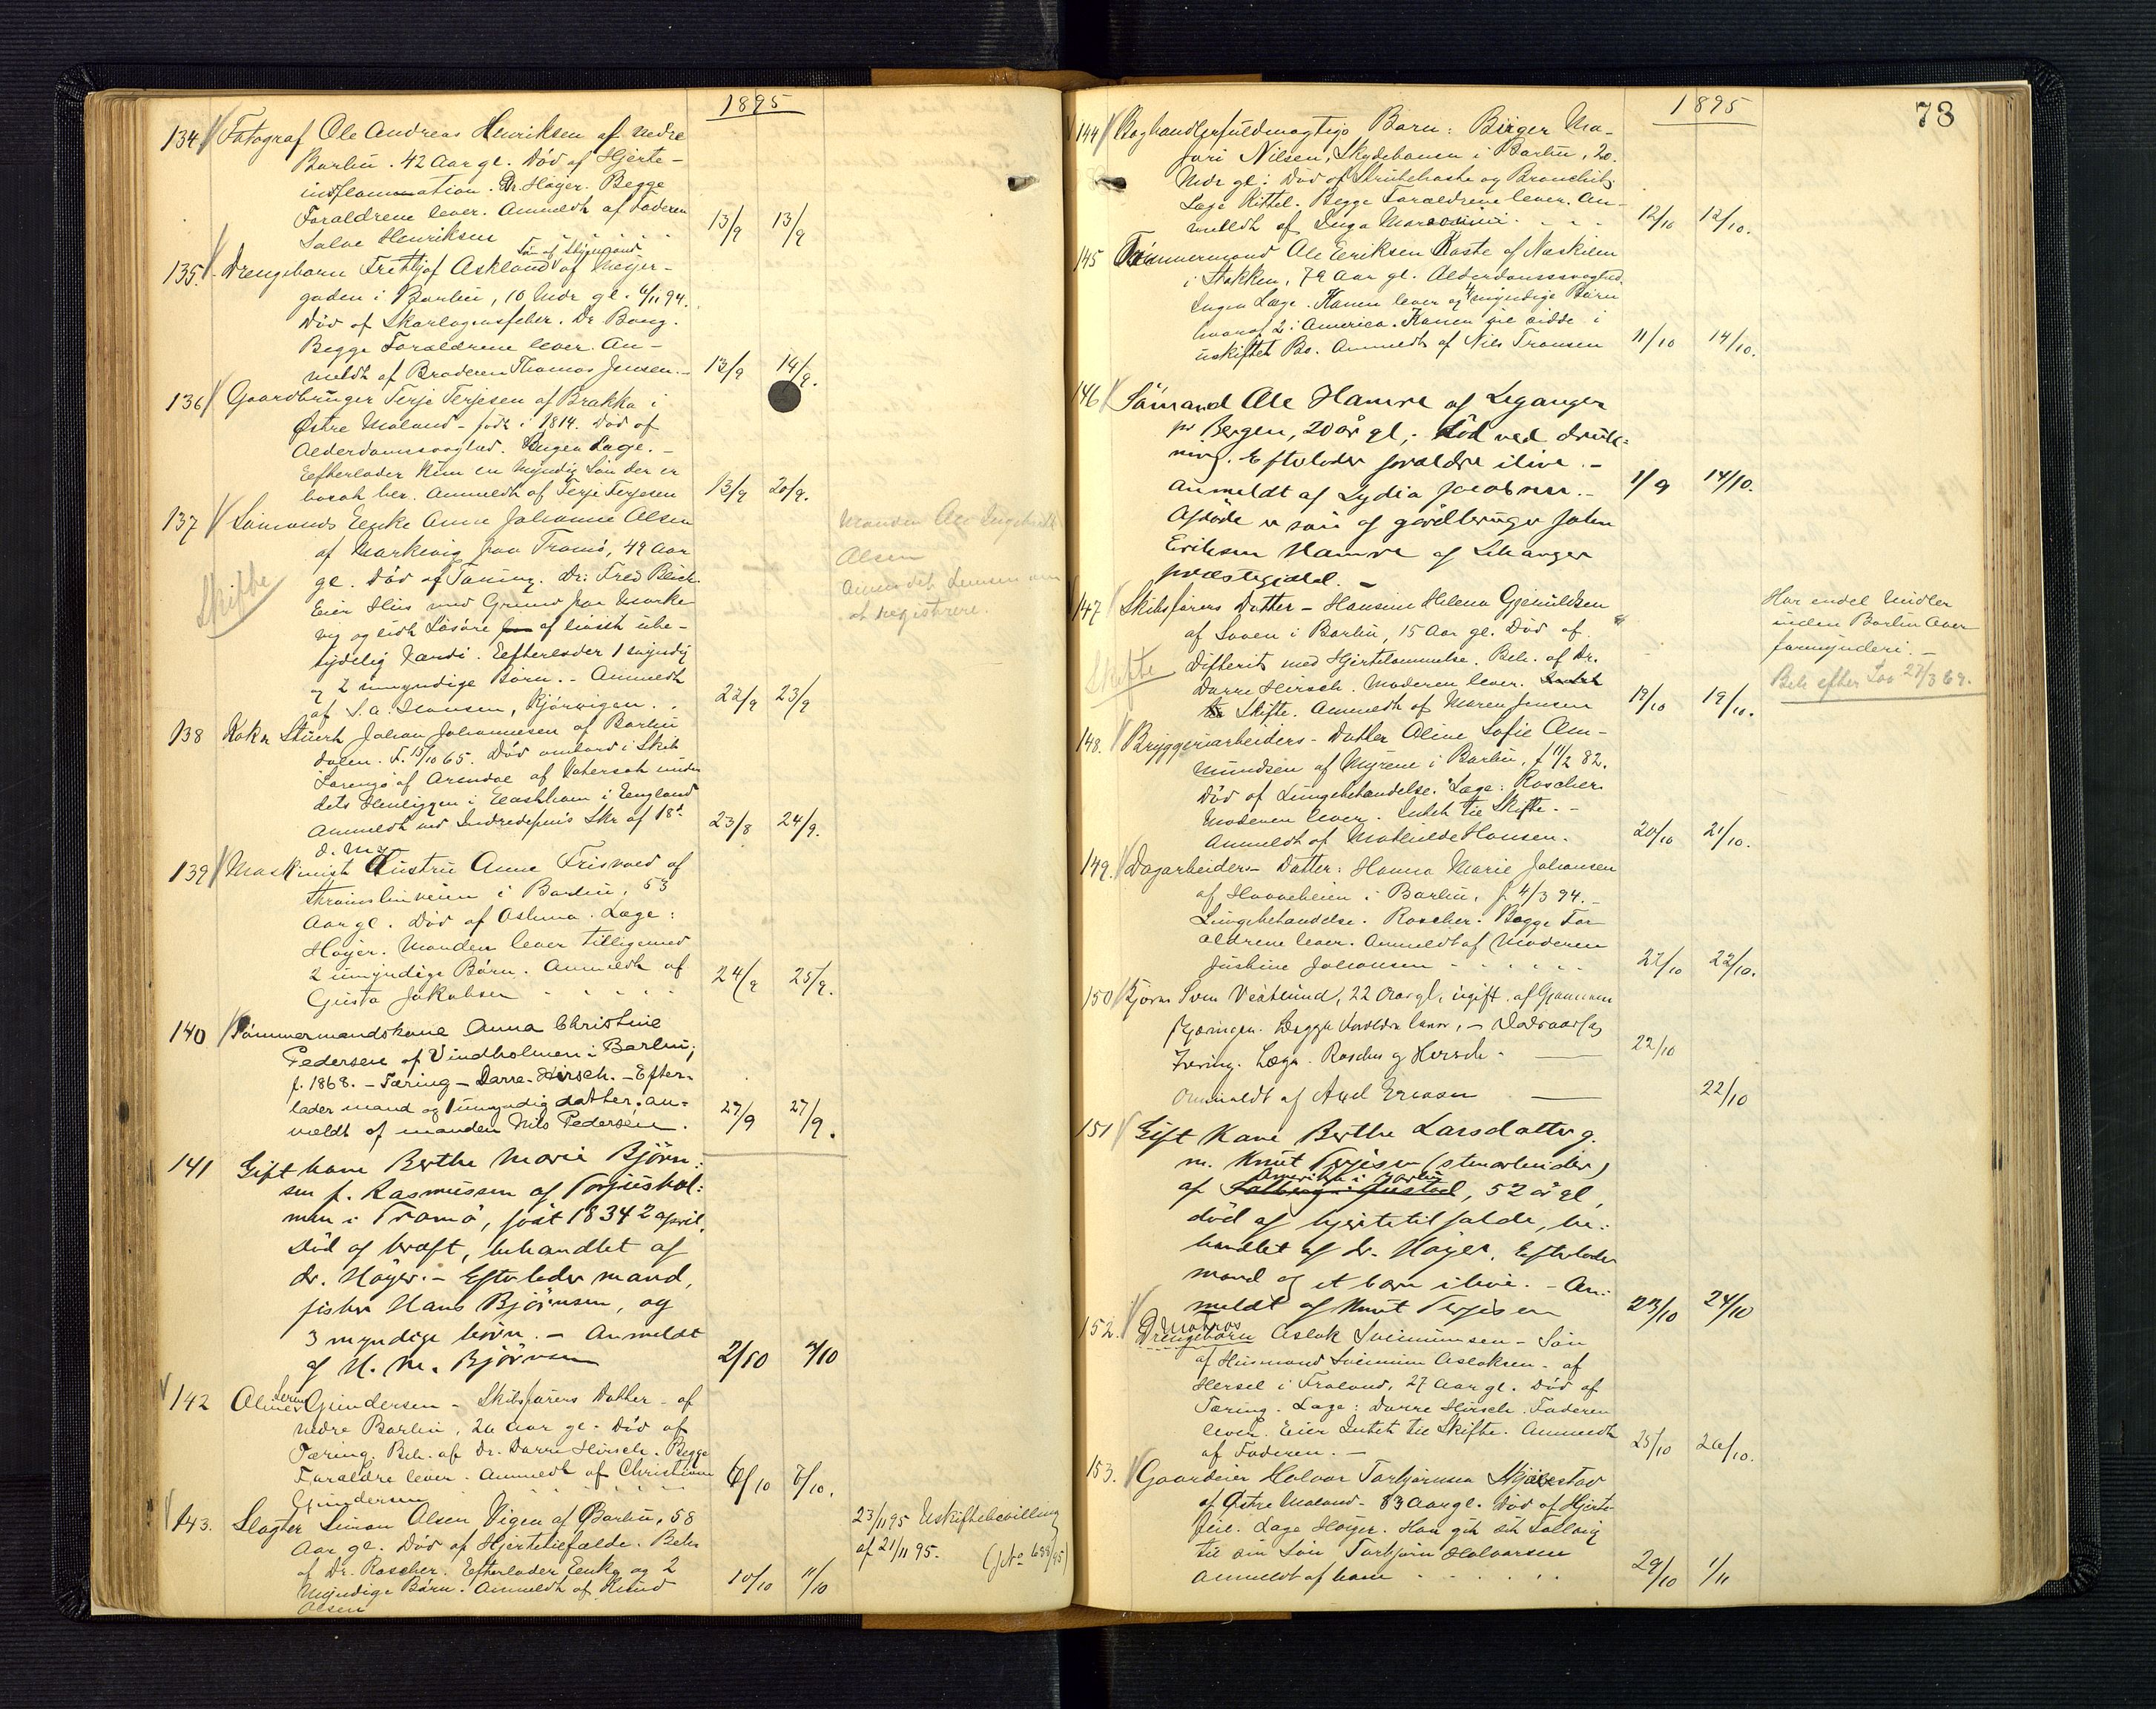 1895
134 Fotograf Ole Andreas Henriksen af nedre
Barbu. 42 Aar gl. Död af Hjerte-
inflammation. Dr Höyer. Begge
Forældrene lever. Anmeldt af Faderen
Salve Henriksen 13/9 13/9
135. Drengebarn Frithjof Askland af Meyer-
gaden i Barbu, 10 Mdr gl. 6/11 94.
Död af Skarlagensfeber. Dr Bang.
Begge Forældrene lever. An-
meldt af Broderen Thomas Jensen. 13/9 14/9.
136 Gaardbruger Terje Terjesen af Brække i
Østre Moland - födt i 1814. Död af
Alderdomssvaghed. Ingen Læge. -
Efterlader kun en myndig Sön der er
bosat her. Anmeldt af Terje Terjesen 13/9 20/9.
137 Sömands Enke Anne Johanne Olsen
af Markevig paa Tromö, 49 Aar
gl. Död af Tæring. Dr: Fred Blich.
Eier Hus med Grund paa Marke
vig og lidt Lösöre af hvilket ube-
tydelig Værdi. Efterlader 1 myndig
og 2 umyndige Börn. - Anmeldt
af S. A. Hansen, Kjörvigen. 22/9 23/9
Skifte
Manden Age Ingebrekt
Olsen
Anmodet Lensm om
at registrere.
138 Kok & Stuert Johan Johannesen af Barbu
dalen. F. 13/10 65. Död ombord i Skib
"Lorenzo" af Arendal af Vatersot under
dets Henliggen i Eastham i England
Anmeldt ved Indredepnis Skr af 18d
d. M. 23/8 24/9.
139 Maskinist Hustru Anne Frisvold af
Strömsbuveien i Barbu, 53
Aar gl. Död af Astma. Læge:
Höyer. Manden lever tilligemed
2 umyndige Börn. Anmeldt af
Gusta Jakobsen 24/9 25/9.
140 Tömmermandskone Anna Christine
Pedersen af Vindholmen i Barbu,
f. 1868. - Tæring - Darre-Hirsch. - Efter-
lader mand og 1 umyndig datter. an-
meldt af manden Nils Pedersen. 27/9 27/9.
141 Gift kone Berthe Marie Björn-
sen f. Rasmussen af Torjushol-
men i Tromö, födt 1834 2 april.
Död af kræft, behandlet af
dr. Höyer. - Efterlader mand,
fisker Hans Björnsen, og
3 myndige börn. - Anmeldt
af H. M. Björnsen 2/10 3/10
142 Oline Gundersen - Skibsförers Datter - af
nedre Barbu, 20 Aar gl. Död af
Tæring. Beh. af Dr. Darre Hirsch. Begge
Forældre lever. Anmeldt af Christiane
Gundersen 6/10 7/10.
143. Slagter Simon Olsen Vigen af Barbu, 58
Aar gl. Död af Hjertetilfælde. Beh
af Dr. Roscher. Efterlader Enke og 2
Myndige Börn. Anmeldt af Knud
Olsen 10/10 11/10
23/11 95 Uskiftebevilling
af 21/11 95. (J No 688/95)
1895
73
144 Boghandlerfuldmægtigs Barn: Birger Ma-
juri Nilsen, Skydebanen i Barbu, 20.
Mdr gl: Död af Strubehoste og Bronchit,
Læge Kittel. Begge Forældrene lever. An-
meldt af Inga 12/10 12/10.
145 Tömmermand Ole Eriksen Raste af Naskilen
i Stokken, 79 Aar gl. Alderdomssvaghed.
Ingen Læge. Konen lever og 4 myndige Börn
hvoraf 2 i America. Konen vil sidde i
uskiftet Bo. Anmeldt af Nils Fransen 11/10 14/10.
146 Sömand Ole Hamre af Leganger
pr Bergen, 20 år gl,. död ved druk-
ning. Efterlader forældre ilive. -
Anmeldt af Lydia Jacobsen. - 1/9 14/10.
Afdöde er sön af gårdbruger John
Eriksen Hamre af Lekanger
præstegjæld. -
147 Skibsförers Datter - Hansine Helena Gjemuldsen
af Loven i Barbu, 15 Aar gl. Död af
Difterit med Hjertelammelse. Beh. af Dr.
Darre Hirsch. Moderen lever.
Skifte. Anmeldt af Maren Jensen 19/10 19/10.
Skifte
Har endel Midler
under Barbu Over
formynderi. -
Beh efter Lov 27/3 69.
148. Bryggeriarbeiders - Datter Oline Sofie Am-
mundsen af Myrene i Barbu, f 11/2 82.
Död af Lungebetændelse. Læge: Roscher
Moderen lever. Intet til Skifte. -
Anmeldt af Mathilde Hansen. 20/10 21/10.
149. Dagarbeiders Datter: Hanna Marie Johansen
af Haaneheien i Barbu, f. 4/3 94. -
Lungebetændelse. Roscher. Begge For
ældrene lever. Anmeldt af Moderen
Justine Johansen 22/10 22/10.
150 Sven Vestlund, 22 Aar gl, ugift. af
Begge Forældre lever, - Död af
Tæring. Læge. Roscher og Hirsch - 22/10
Anmeldt af Axel Ericsen 22/10
151 Gift Kone Berthe Larsdatter g.
m. Knut Terjesen (stenarbeider)
af Amerika i Barbu, 52 år gl,
död af hjertetilfælde, be-
handlet af dr. Höyer. Efterlader
mand og et barn ilive. - An-
meldt af Knut Terjesen 23/10 24/10
152. Matros
Drengebarn Aslak Sveinumsen - Sön
af Husmand Sveinum Aslaksen - af
Hersel i Froland, 27 Aar gl. Död af
Tæring. Læge: Darre Hirsch. Faderen
lever. Eier Intet til Skifte. Anmeldt
af Faderen. - 25/10 26/10.
153. Gaardeier Halvor Torbjörnsen Skjævestad
af Østre Moland - 83 Aar gl. Död af Hjerte
feil. Læge Höyer. Han gik
til sin Sön Torbjörn Halvorsen
Anmeldt af ham 29/10 1/11